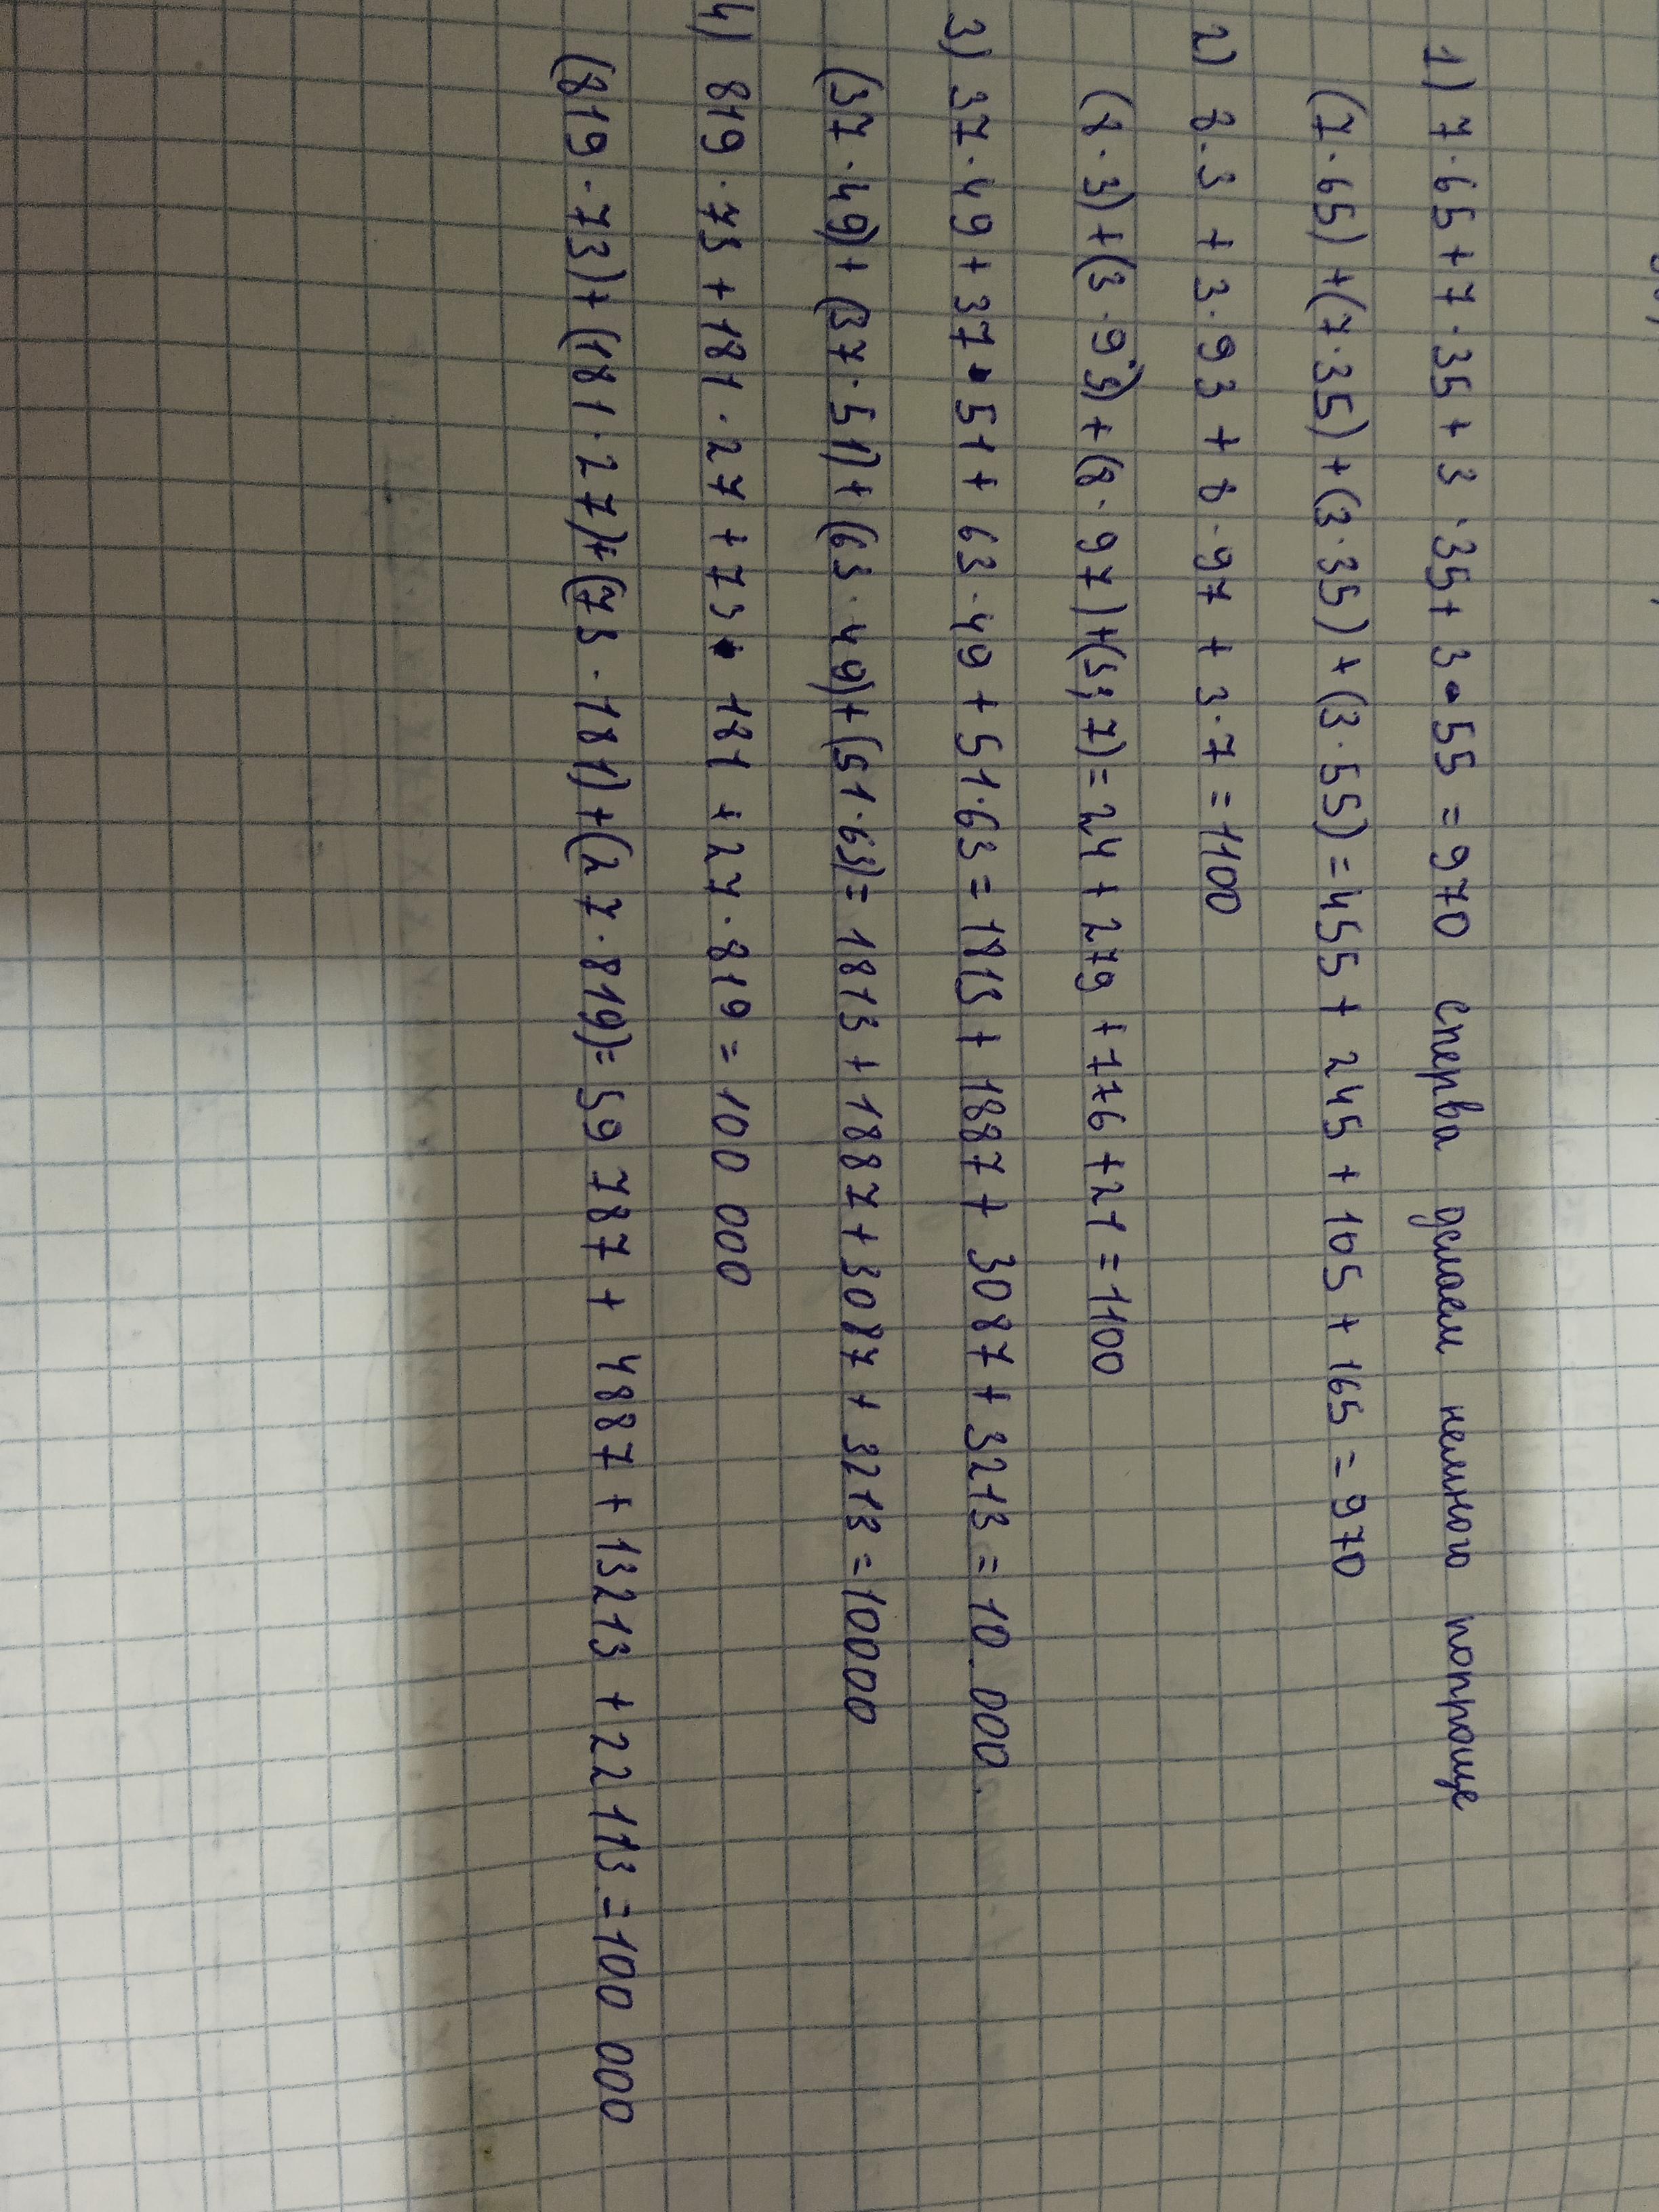 1) 7·65+7·35+3·35+3·55=970 сперва делаем немного попроще
(7·65)+(7·35)+(3·35)+(3·55)=455+245+105+165=970
2) 8·3+3·93+8·97+3·7=1100
(8·3)+(3·93)+(8·97)+(3·7)=24+279+776+21=1100
3) 37·49+37·51+63·49+51·63=1813+1887+3087+3213=10 000.
(37·49)+(37·51)+(63·49)+(51·63)=1813+1887+3087+3213=10000
4) 819·73+181·27+73·181+27·819=100 000
(819·73)+(181·27)+(73·181)+(27·819)=59 787+4887+13213+22113=100 000